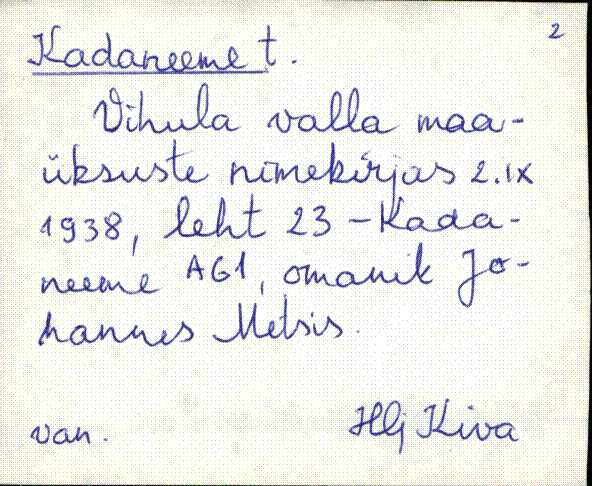 2
Kadaneeme t.
Vihula valla maa-
üksuste nimekirjas 2.IX
1938, leht 23 - Kada-
neeme A61, omanik Jo-
hannes Metsis.
van. Hlj Kiva